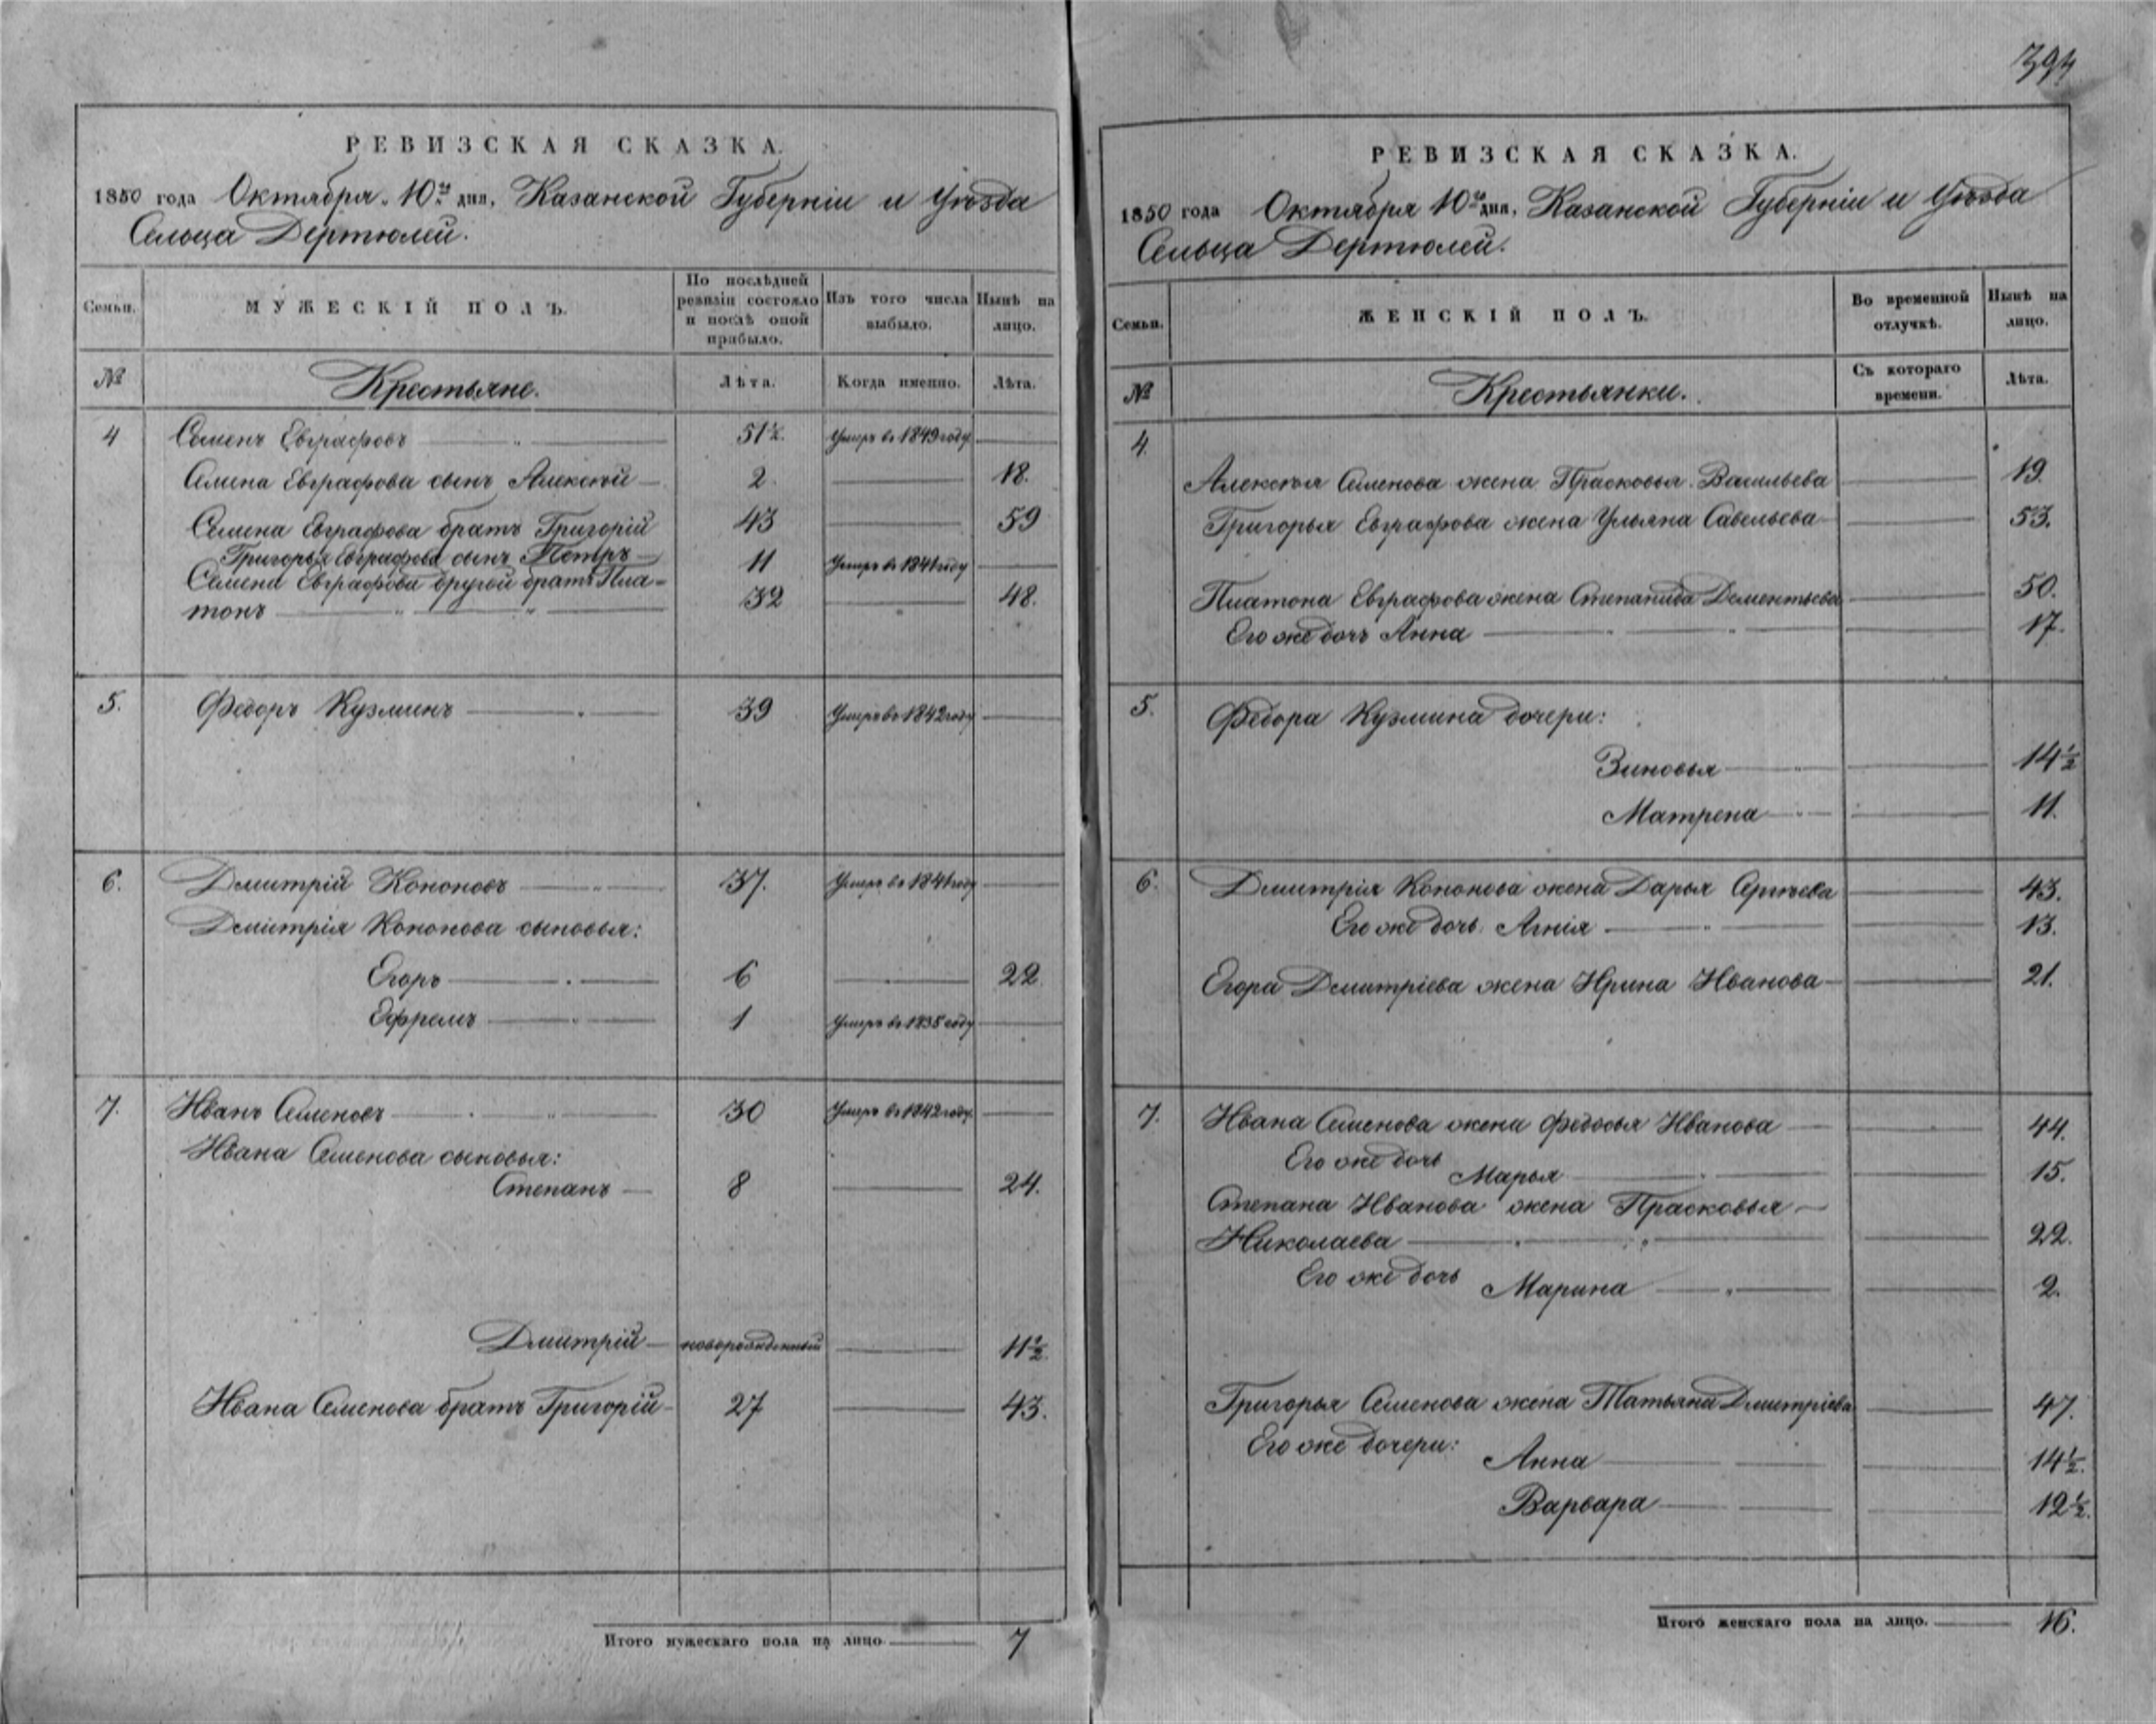 394
РЕВИЗСКАЯ СКАЗКА.
1850 года Октября 10го дня, Казанской Губерніи и Уѣзда
Сельца Дертюлей.
Семьи.
МУЖЕСКІЙ ПОЛЪ.
По послѣдней ревизіи состояло и послѣ оной прибыло.
Изъ того числа выбыло.
Нынѣ на лицо.
№ Крестьяне. Лѣта. Когда именно. Лѣта.
4 Семенъ Евграфовъ 51½. Умеръ въ 1849 году
Семена Евграфова сынъ Алексѣй 2. 18.
Семена Евграфова братъ Григорій 43 59
Григорья Евграфова сынъ Петръ 11 Умеръ въ 1841 году
Семена Евграфова другой братъ Пла=
тонъ 32 48.
5. Федоръ Кузминъ 39 Умеръ въ 1842 году
6. Дмитрій Кононовъ 37. Умеръ въ 1841 году
Дмитрія Кононова сыновья:
Егоръ 6 22
Ефремъ 1 Умеръ въ 1835 году
7. Иванъ Семеновъ 30 Умеръ въ 1842 году
Ивана Семенова сыновья:
Степанъ 8 24.
Дмитрій новорожденный 11½.
Ивана Семенова братъ Григорій 27 43.
Итого мужескаго пола на лицо 7
РЕВИЗСКАЯ СКАЗКА.
1850 года Октября 10го дня, Казанской Губерніи и Уѣзда
Сельца Дертюлей.
Семьи.
ЖЕНСКІЙ ПОЛЪ.
Во временной отлучкѣ.
Нынѣ на лицо.
№ Крестьянки. Съ котораго времени. Лѣта.
4.
Алексѣя Семенова жена Прасковья Васильева 19.
Григорья Евграфова жена Ульяна Савельева 53.
Платона Евграфова жена Степанида Дементьева 50.
Его же дочь Анна 17.
5. Федора Кузмина дочери:
Зиновья 14½
Матрена 11.
6. Дмитрія Кононова жена Дарья Сергѣева 43.
Его же дочь Агнія 13.
Егора Дмитріева жена Ирина Иванова 21.
7. Ивана Семенова жена Федосья Иванова 44.
Его же дочь Марья 15.
Степана Иванова жена Прасковья
Николаева 22.
Его же дочь Марина 2.
Григорья Семенова жена Татьяна Дмитріева 47.
Его же дочери: Анна 14½.
Варвара 12½.
Итого женскаго пола на лицо. 16.